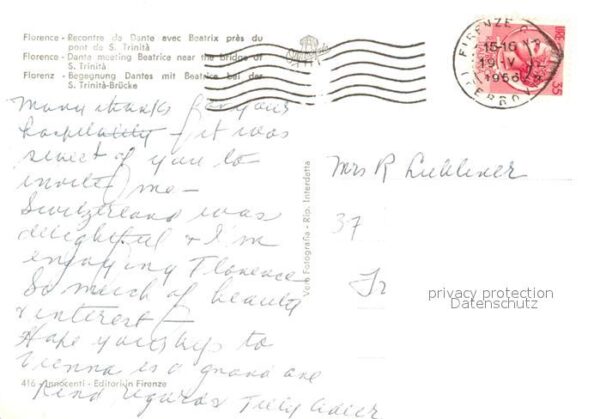 Florence - Recontre de Dante evec Beatrix près du
pont de S. Trinità
Florence - Dante meeting Beatrice near the bridge of
S. Trinità
Florenz - Begegnung Dantes mit Beatrice bei der
S. Trinità-Brücke
FIRENZE
15-16
19. V
1956
Many thanks for your
hospitality - it was
sweet of you to
invite me -
Switzerland was
delightful & I'm
enjoying Florence
So much of beauty
& interest -
Hope your trip to
Vienna is a grand one
Kind regards Tilly Adler
416 - Innocenti - Editori in Firenze
Vera Fotografia - Rip. Interdetta
Mrs R Lubliner
37
privacy protection
Datenschutz